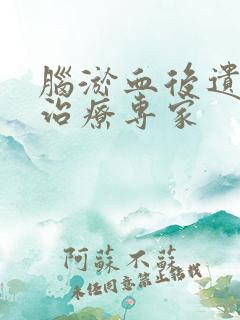 腦淤血後遺
治療專家
阿蘇不蘇
未經同意禁止轉載